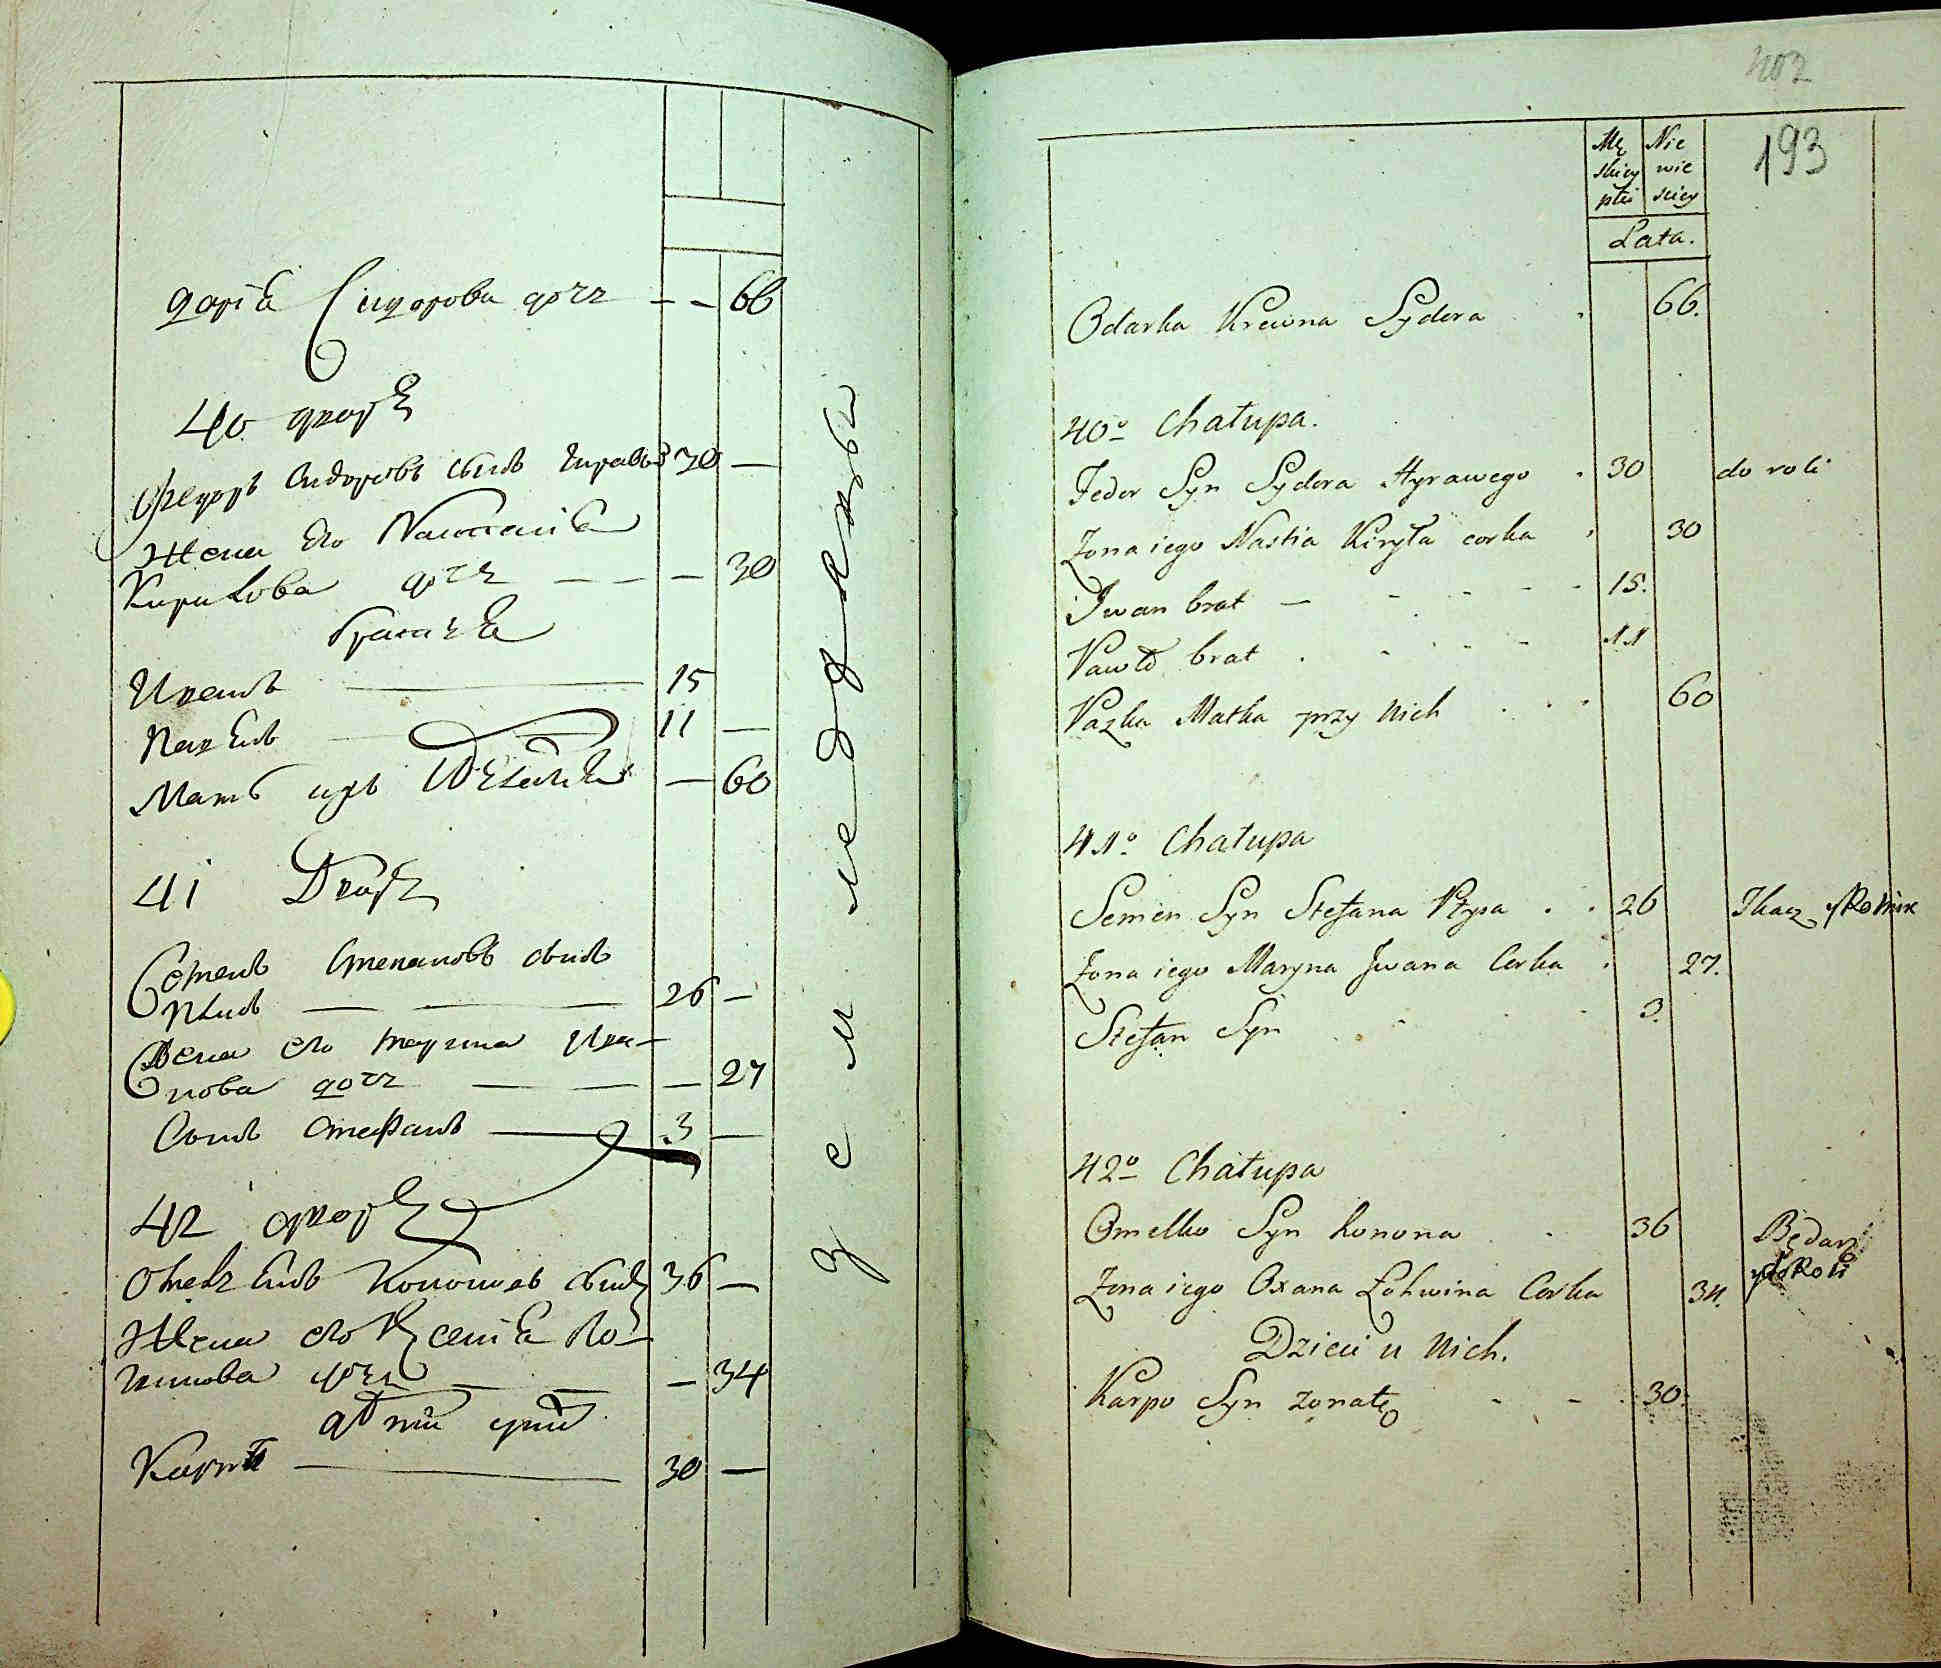 Дарїа Сидорова дочь — — 66
40 дворъ
Федоръ Сидоровъ сынъ 30 —
Жена его Настасїа
Кирилова дочь — — — 30
братья
Иванъ — 15
Павелъ — 11 —
Мать ихъ — 60
41 Дворъ
Семенъ Степановъ сынъ
— — 26 —
Жена его Марина Ива-
нова дочь — — — 27
Сынъ Стефанъ — 3 —
42 дворъ
Омельянъ Кононовъ сынъ 36 —
Жена его Ксенїа Ло-
гинова дочь — — — 34
дѣти
Карпъ — 30 —
земледельцы
402
193
Mę Nie
skiey wie
płci sciey
Lata.
Odarka Krewna Sydora 66.
40º Chałupa.
Fedor Syn Sydora Hyrawego 30 do roli
Zona iego Nastia Kiryła corka 30
Iwan brat — 15.
Pawło brat 11
Pazka Matka przy nich 60
41º Chałupa
Semen Syn Stefana 26 Tkacz
Zona iego Maryna Iwana Corka 27.
Stefan Syn 3.
42º Chałupa
Omelko Syn Konona 36 Bednarz
Zona iego Oxana Łohwina Corka 34.
Dzieci u nich.
Karpo Syn zonaty 30.